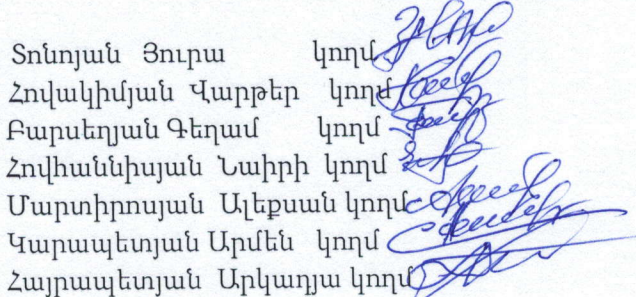 Տոնոյան Յուրա կողմ
Հովակիմյան Վարթեր կողմ
Բարսեղյան Գեղամ կողմ
Հովհաննիսյան Նաիրի կողմ
Մարտիրոսյան Ալեքսան կողմ
Կարապետյան Արմեն կողմ
Հայրապետյան Արկադյա կողմ